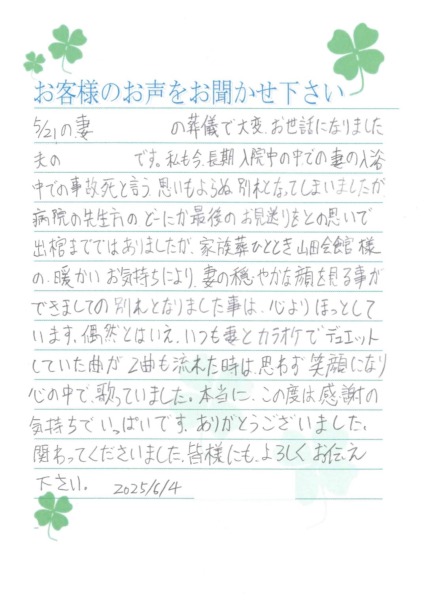 お客様のお声をお聞かせ下さい
5/21の妻 の葬儀で大変、お世話になりました
夫の です。私も今、長期入院中の中での妻の入浴
中での事故死と言う思いもよらぬ別れとなってしまいましたが
病院の先生方のどーにか最後のお見送りをとの思いで
出棺まででではありましたが、家族葬ひととき山田会館様
の、暖かいお気持ちにより、妻の穏やかな顔を見る事が
できましての別れとなりました事は、心よりほっとして
います。偶然とはいえ、いつも妻とカラオケでデュエット
していた曲が2曲も流れた時は、思わず笑顔になり
心の中で、歌っていました。本当に、この度は感謝の
気持ちでいっぱいです。ありがとうございました。
関わってくださいました、皆様にも、よろしくお伝え
下さい。 2025/6/4